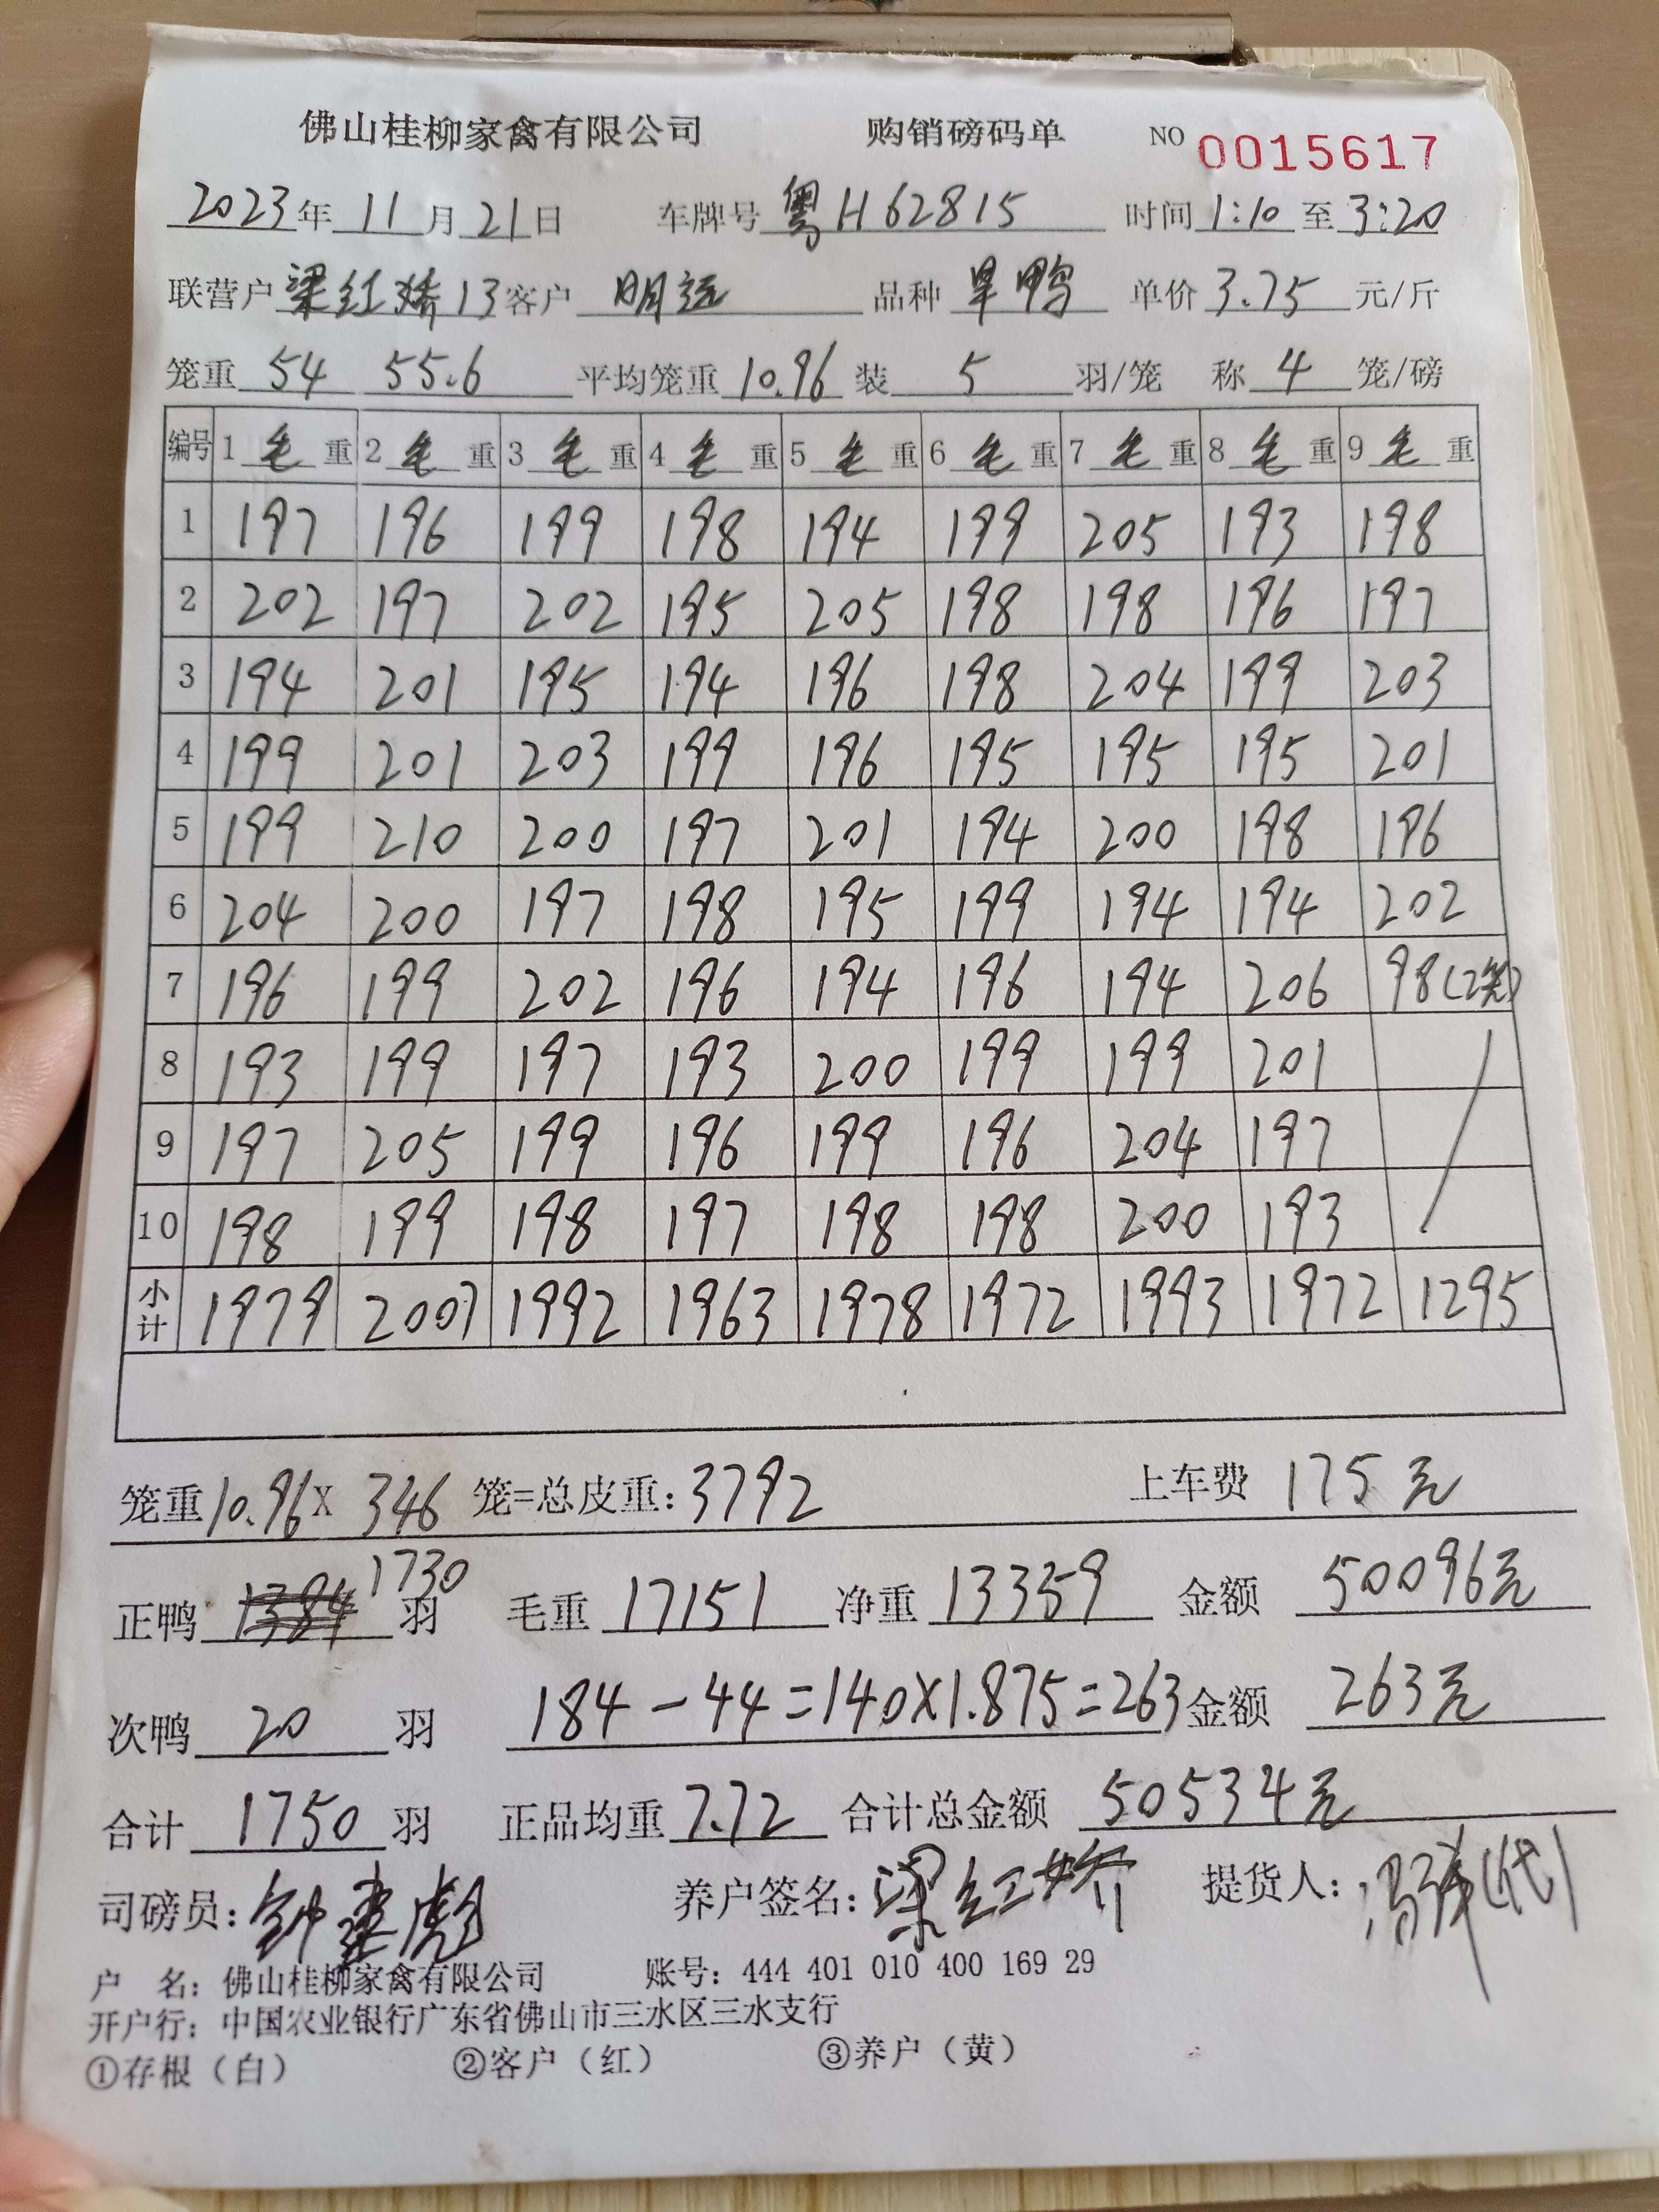 佛山桂柳家禽有限公司 购销磅码单 NO 0015617
2023年 11月 21日 车牌号 粤H62815 时间 1:10 至 3:20
联营户 梁红娇13 客户 明远 品种 旱鸭 单价 3.75 元/斤
笼重 54 55.6 平均笼重 10.96 装 5 羽/笼 称 4 笼/磅
编号 1 毛 重 2 毛 重 3 毛 重 4 毛 重 5 毛 重 6 毛 重 7 毛 重 8 毛 重 9 毛 重
1 197 196 199 198 194 199 205 193 198
2 202 197 202 195 205 198 198 196 197
3 194 201 195 194 196 198 204 199 203
4 199 201 203 199 196 195 195 195 201
5 199 210 200 197 201 194 200 198 196
6 204 200 197 198 195 199 194 194 202
7 196 199 202 196 194 196 194 206 98(2笼)
8 193 199 197 193 200 199 199 201
9 197 205 199 196 199 196 204 197
10 198 199 198 197 198 198 200 193
小计 1979 2007 1992 1963 1978 1972 1993 1972 1295
笼重 10.96 X 346 笼=总皮重: 3792 上车费 175元
正鸭 1384 1730 羽 毛重 17151 净重 13359 金额 50096元
次鸭 20 羽 184-44=140×1.875=263 金额 263元
合计 1750 羽 正品均重 7.72 合计总金额 50534元
司磅员: 钟建彪 养户签名: 梁红娇 提货人: (代)
户 名: 佛山桂柳家禽有限公司 账号: 444 401 010 400 169 29
开户行: 中国农业银行广东省佛山市三水区三水支行
①存根(白) ②客户(红) ③养户(黄)